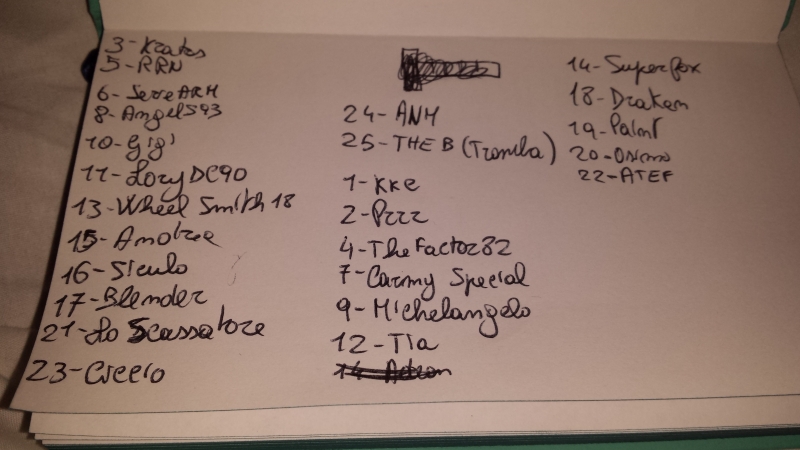 3-Kratos
5-RRN
6-SerreARM
8-Angel593
10-Gigi
11-LoryDC90
13-Wheel Smith 18
15-Andrea
16-Siculo
17-Blender
21-Lo Scassatore
23-Cicero
24-ANM
25-THE B (Tromba)
1-KKe
2-Pzzz
4-TheFactor82
7-Carmy Special
9-Michelangelo
12-Tia
14-
14-Superfox
18-Draken
19-
20-
22-ATEF